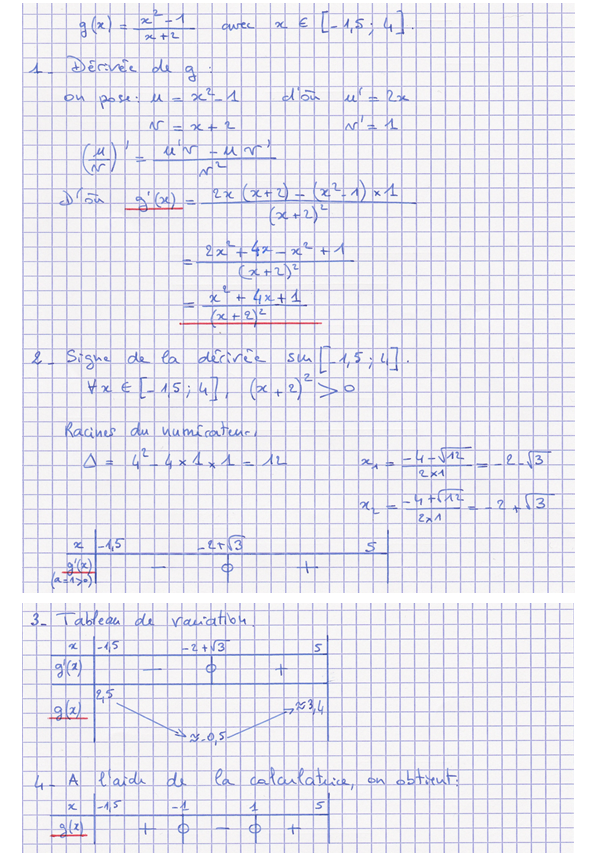 g(x) = (x² - 1)/(x + 2) avec x ∈ [-1,5 ; 4].
1_ Dérivée de g :
on pose : u = x² - 1 d'où u' = 2x
v = x + 2 v' = 1
(u/v)' = (u'v - u v')/v²
D'où g'(x) = (2x (x+2) - (x²-1) × 1)/(x+2)²
= (2x² + 4x - x² + 1)/(x+2)²
= (x² + 4x + 1)/(x+2)²
2_ Signe de la dérivée sur [-1,5 ; 4].
∀x ∈ [-1,5 ; 4], (x + 2)² > 0
Racines du numérateur.
Δ = 4² - 4 × 1 × 1 = 12 x₁ = (-4 - √12)/(2×1) = -2 - √3
x₂ = (-4 + √12)/(2×1) = -2 + √3
x -1,5 -2+√3 5
g'(x) - 0 +
(a=1>0)
3_ Tableau de variation.
x -1,5 -2+√3 5
g'(x) - 0 +
2,5
g(x) ≈3,4
≈-0,5
4_ A l'aide de la calculatrice, on obtient:
x -1,5 -1 1 5
g(x) + 0 - 0 +